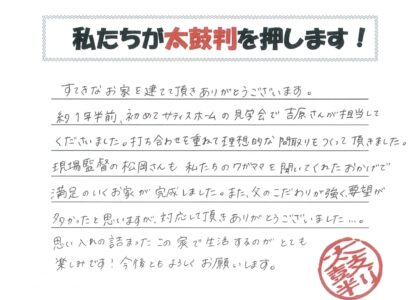 私たちが太鼓判を押します！
すてきなお家を建てて頂きありがとうございます。
約1年半前、初めてサティスホームの見学会で吉原さんが担当して
くださいました。打ち合わせを重ねて理想的な間取りをつくって頂きました。
現場監督の松岡さんも私たちのワガママを聞いてくれたおかげで
満足のいくお家が完成しました。また、父のこだわりが強く、要望が
多かったと思いますが、対応して頂きありがとうございました…。
思い入れの詰まったこの家で生活するのがとても
楽しみです！今後ともよろしくお願いします。